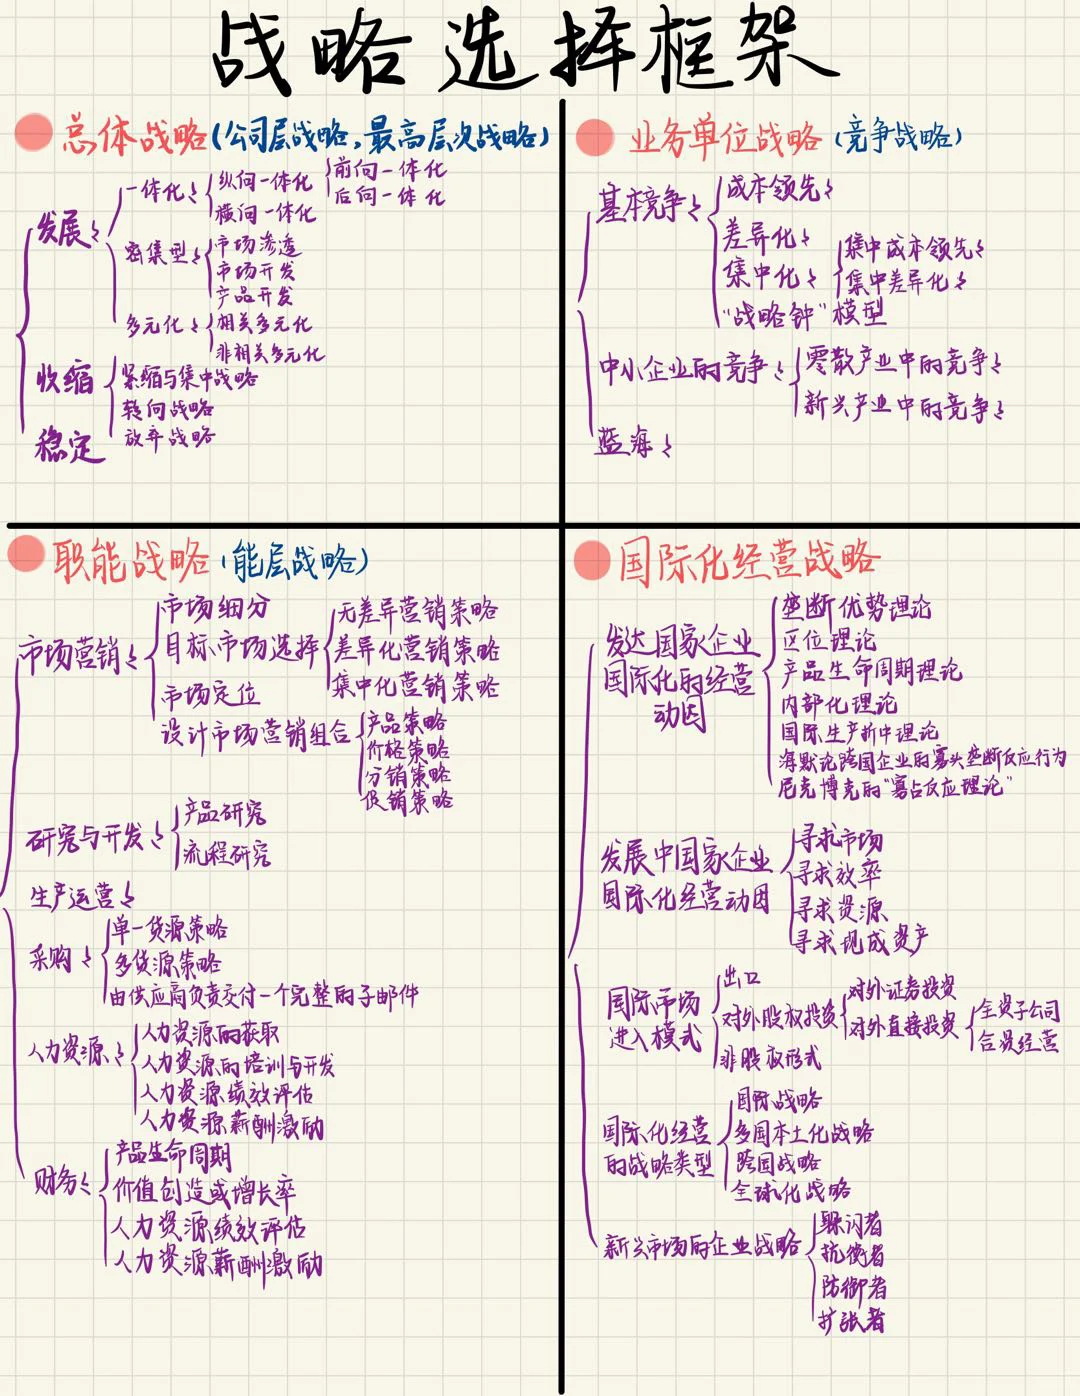 战略选择框架
总体战略(公司层战略,最高层次战略)
发展
一体化
纵向一体化
前向一体化
后向一体化
横向一体化
密集型
市场渗透
市场开发
产品开发
多元化
相关多元化
非相关多元化
收缩
紧缩与集中战略
转向战略
放弃战略
稳定
业务单位战略(竞争战略)
基本竞争
成本领先
差异化
集中化
集中成本领先
集中差异化
“战略钟”模型
中小企业的竞争
零散产业中的竞争
新兴产业中的竞争
蓝海
职能战略(能层战略)
市场营销
市场细分
目标市场选择
无差异营销策略
差异化营销策略
集中化营销策略
市场定位
设计市场营销组合
产品策略
价格策略
分销策略
促销策略
研究与开发
产品研究
流程研究
生产运营
采购
单一货源策略
多货源策略
由供应商负责交付一个完整的子部件
人力资源
人力资源的获取
人力资源的培训与开发
人力资源绩效评估
人力资源薪酬激励
财务
产品生命周期
价值创造或增长率
人力资源绩效评估
人力资源薪酬激励
国际化经营战略
发达国家企业
国际化的经营
动因
垄断优势理论
区位理论
产品生命周期理论
内部化理论
国际生产折中理论
海默论跨国企业的寡头垄断反应行为
尼克博克的“寡占反应理论”
发展中国家企业
国际化经营动因
寻求市场
寻求效率
寻求资源
寻求现成资产
国际市场
进入模式
出口
对外股权投资
对外证券投资
对外直接投资
全资子公司
合资经营
非股权形式
国际化经营
的战略类型
国际战略
多国本土化战略
跨国战略
全球化战略
新兴市场的企业战略
躲闪者
抗衡者
防御者
扩张者